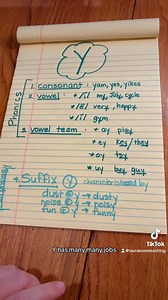 Y
Phonics
1. consonant : yam, yes, yikes
2. vowel : * /ī/ my, July, cycle
* /ē/ very, happy
* /ĭ/ gym
3. vowel team : * ay play
* ey key / they
* oy toy
* uy buy, guy
→ Suffix Y characterized by
dust + y → dusty
noise + y → noisy
fun + y → funny
Y has many many jobs
TikTok